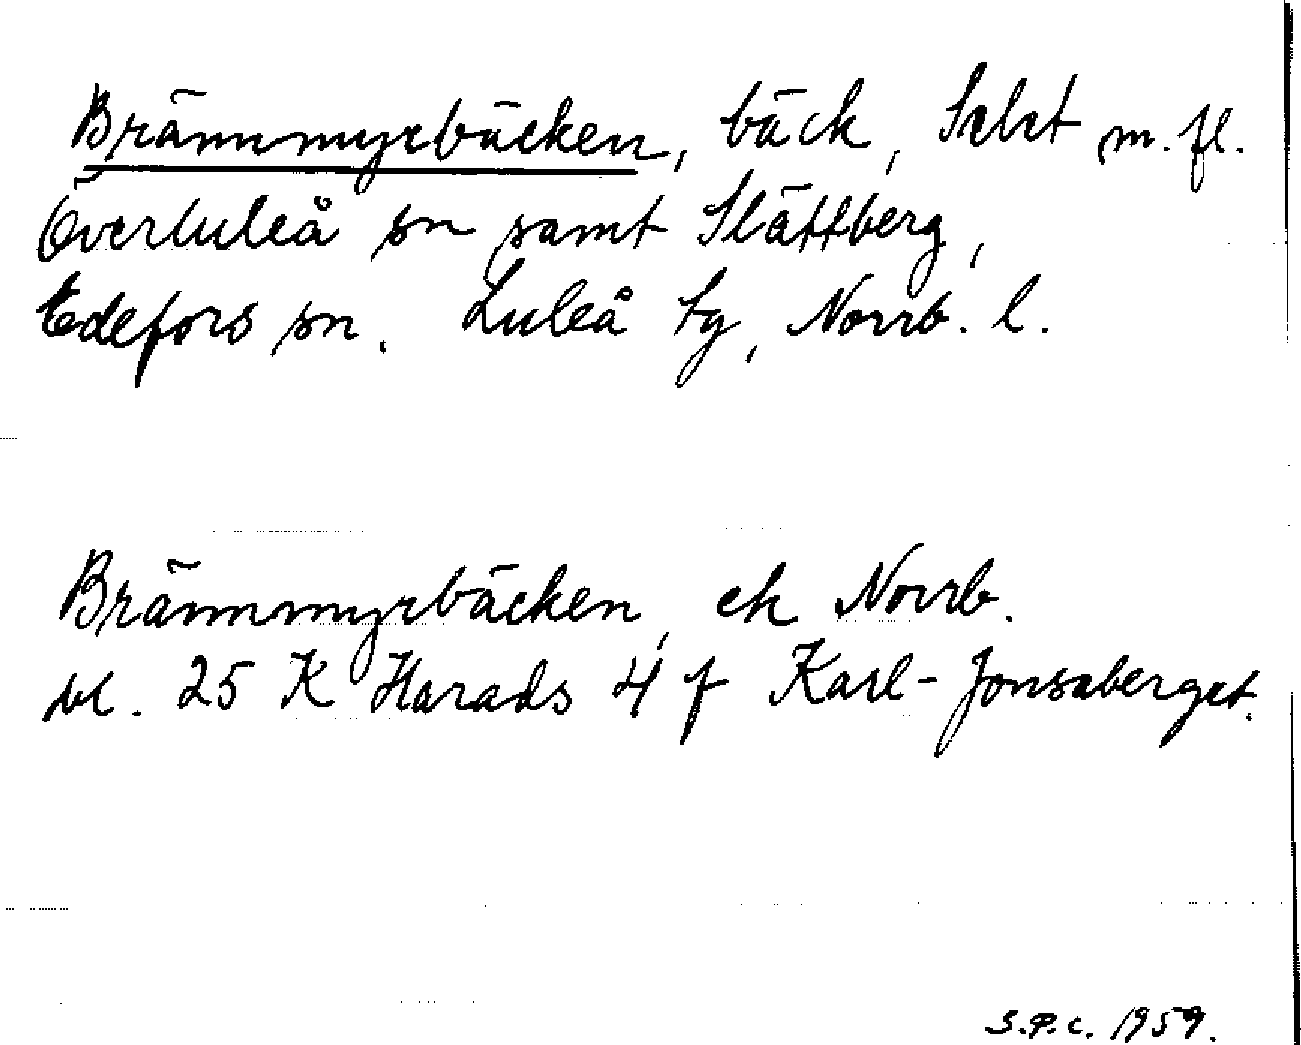 Brännmyrbäcken, bäck, Selet m. fl.
Överluleå sn samt Slättberg,
Edefors sn. Luleå tg, Norrb. l.
Brännmyrbäcken, ek Norrb.
bl. 25 K Harads 4 f Karl-Jonsaberget.
S.P.C. 1959.